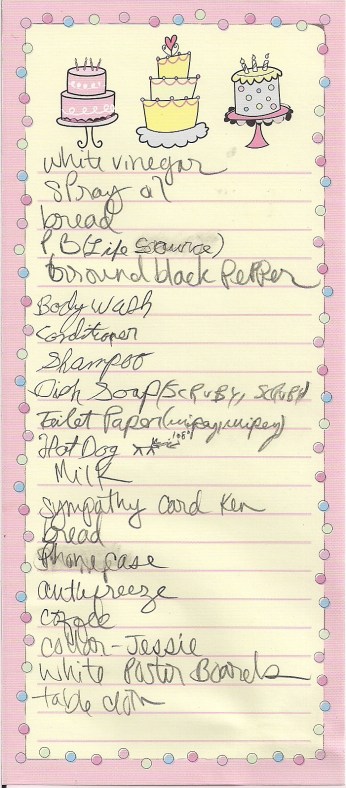 white vinegar
spray oil
bread
PB (Life Source)
Ground black pepper
Body Wash
Conditioner
Shampoo
Dish Soap (Scruby, Scruby)
Toilet Paper (wipey, wipey)
Hot Dog
Milk
Sympathy Card Ken
bread
Phone case
antifreeze
collar-Jessie
White Poster Boards
table cloth